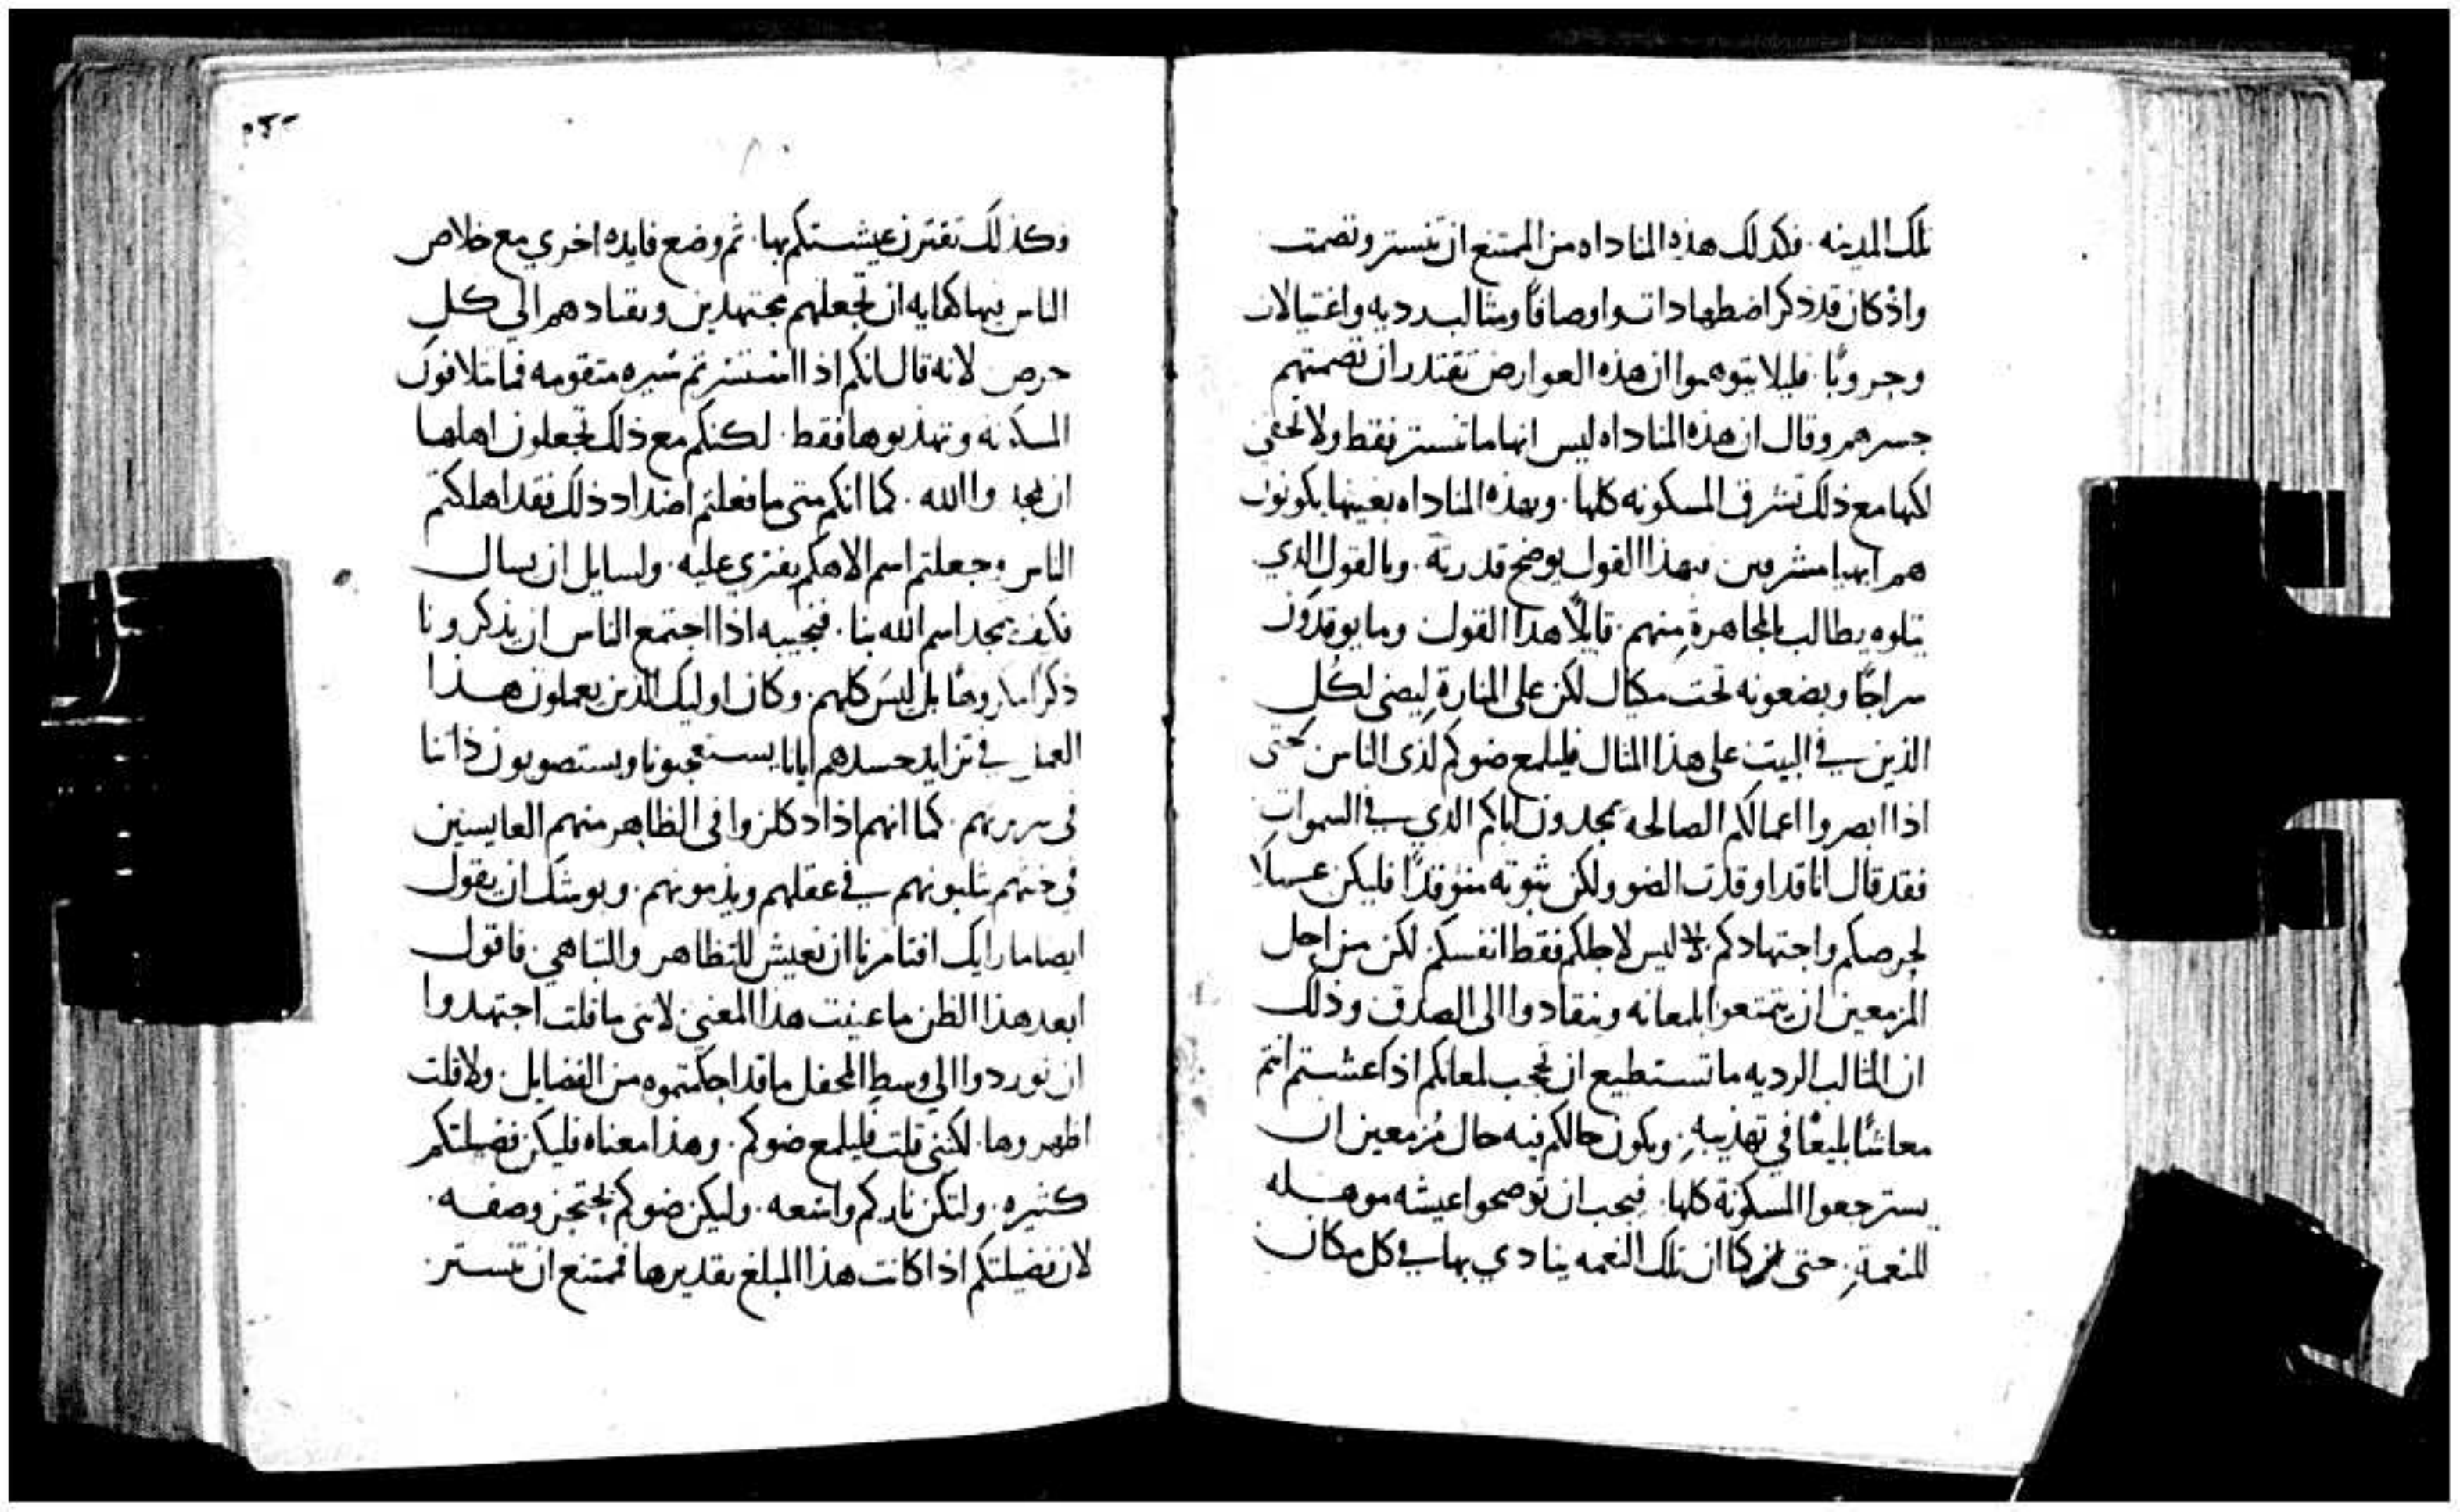 تلك المدينه . فكذلك هذه المناداه من الممتنع ان تنستر وتصمت
واذ كان قد ذكر اضطهادات واوصافًا ومثالب رديه واغتيالات
وحروبًا . فليلا يتوهموا ان هذه العوارض تقتدر ان تصمتهم
جسرهم وقال ان هذه المناداه ليس انها ما تنستر فقط ولا تخفي
لكنها مع ذلك تشرف المسكونه كلها . وبهذه المناداه بعينها يكونون
هم ايضا مشرفين فبهذا القول يوضح قدرته . وبالقول الذي
يتلوه يطالب بالمجاهرةِ منهم . قايلًا هذا القول وما يوقدون
سراجًا ويضعونه تحت مكيال لكن على المنارةِ ليضي لكل
الذين في البيتِ على هذا المثال فليلمع ضوكم لدى الناس حتى
اذا ابصروا اعمالكم الصالحه يمجدون اباكم الذي في السمواتِ
فقد قال انا قد اوقدت الضو ولكن ثبوته متوقدًا فليكن عملًا
لحرصكم واجتهادكم . ليس لاجلكم فقط انفسكم لكن من اجل
المزمعين ان يتمتعوا بلمعانه وينقادوا الى الصدق وذلك
ان المثالب الرديه ما تستطيع ان تحجب لمعانكم اذا عشتم انتم
معاشًا بليغًا في تهذيبهِ . ويكون حالكم فيه حال مُزمعين ان
يسترجعوا المسكونة كلها . فيجب ان توضحوا عيشه موهله
للنعمةِ . حتى كما ان تلك النعمه ينادي بها في كل مكان
وكذلك تقترن عيشتكم بها . ثم وضع فايده اخري مع خلاص
الناس فيها كفايه ان تجعلهم مجتهدين وتقتادهم الي كل
حرص . لانه قال انكم اذا استسرتم سيره متقومه فما تتلافون
المسكونه وتهذبوها فقط . لكنكم مع ذلك تجعلون اهلها
ان يمجدوا الله . كما انكم متى ما فعلتم اضداد ذلك فقد اهلكتم
الناس وجعلتم اسم الاهكم يفتري عليه . ولسايل ان يسال
فكيف يمجد اسم الله بنا . فنجيبه اذا اجتمع الناس ان يذكرونا
ذكرًا مكروهًا بل ليس كلهم . وكان اوليك الذين يعملون هذا
العمل في تزايد حسدهم ايانا يستعجبونا ويستصوبون ذاتنا
في سريرتهم . كما انهم اذا دكلزوا في الظاهر منهم العايسين
في خبثهم يثلبونهم في عقلهم ويذمونهم . ويوشك ان يقول
ايضا ما رايك افتامرنا ان نعيش للتظاهر والتباهي . فاقول
ابعد هذا الظن ما عنيت هذا المعني . لانني ما قلت اجتهدوا
ان توردوا الي وسط المحفل ما قد احكمتموه من الفضايل . ولا قلت
اظهروها . لكنني قلت فليلمع ضوكم . وهذا معناه فليكن فضيلتكم
كثيره . ولتكن ناركم واسعه . وليكن ضوكم يحتجز وصفه .
لان فضيلتكم اذا كانت هذا المبلغ بقديرها فممتنع ان تنستر